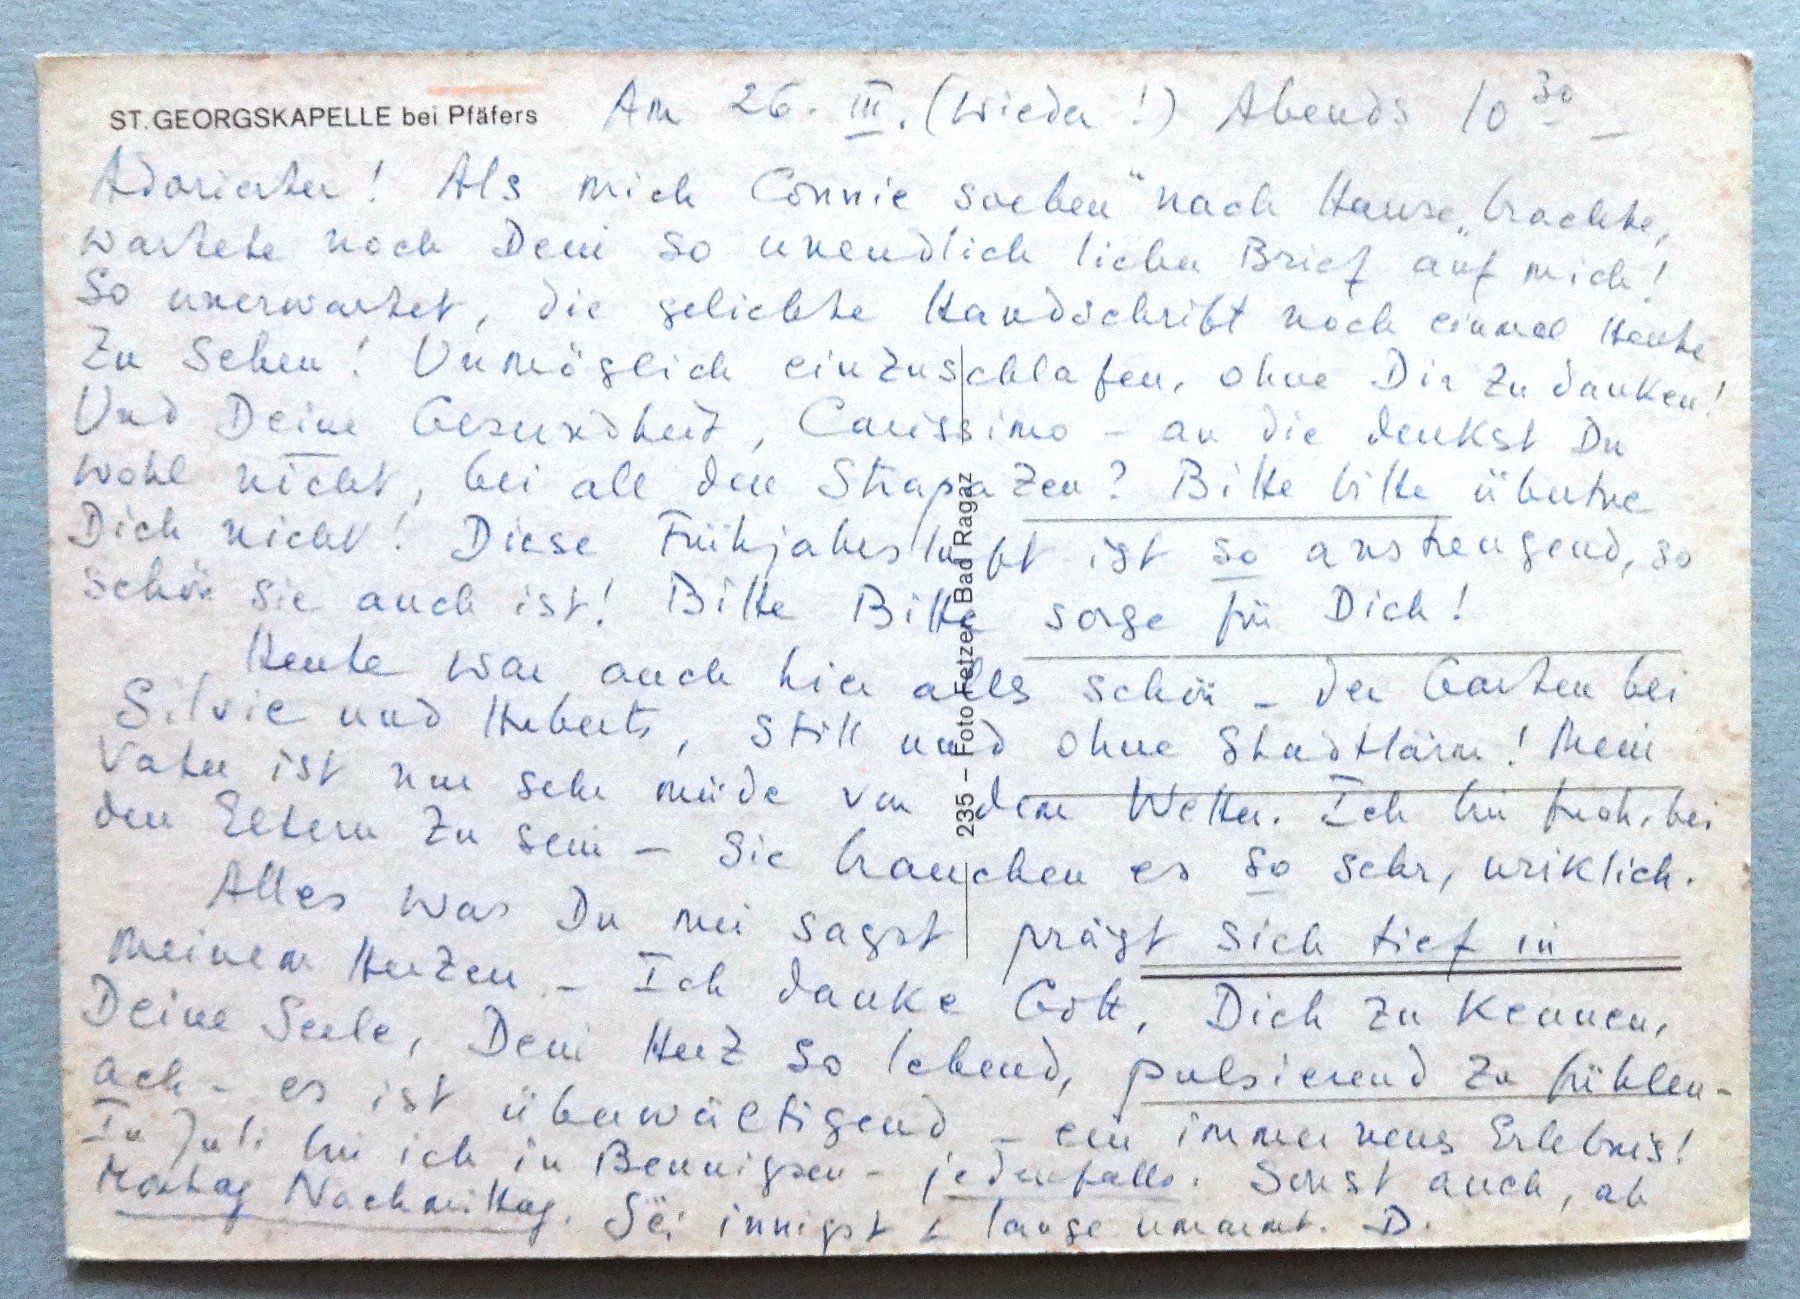 ST. GEORGSKAPELLE bei Pfäfers
Am 26. III. (wieder!) Abends 10 30 –
Adorierter! Als mich Connie soeben "nach Hause" brachte,
wartete noch Dein so unendlich lieber Brief auf mich!
So unerwartet, die geliebte Handschrift noch einmal Heute
zu sehen! Unmöglich einzuschlafen, ohne Dir zu danken!
Und Deine Gesundheit, Carissimo – an die denkst Du
wohl nicht, bei all den Strapazen? Bitte bitte übertue
Dich nicht! Diese Frühjahrsluft ist so anstrengend, so
schön sie auch ist! Bitte Bitte sorge für Dich!
Heute war auch hier alles schön – der Garten bei
Silvie und Huberts, still und ohne Stadtlärm! Mein
Vater ist nur sehr müde von dem Wetter. Ich bin froh, bei
den Eltern zu sein – Sie brauchen es so sehr, wirklich.
Alles was Du mir sagst prägt sich tief in
meinem Herzen – Ich danke Gott, Dich zu kennen,
Deine Seele, Dein Herz so lebend, pulsierend zu fühlen –
ach – es ist überwältigend – ein immer neues Erlebnis!
Im Juli bin ich in Bennigsen – jedenfalls. Sonst auch, ab
Montag Nachmittag. Sei innigst & lange umarmt. D.
235 – Foto Fetzer, Bad Ragaz